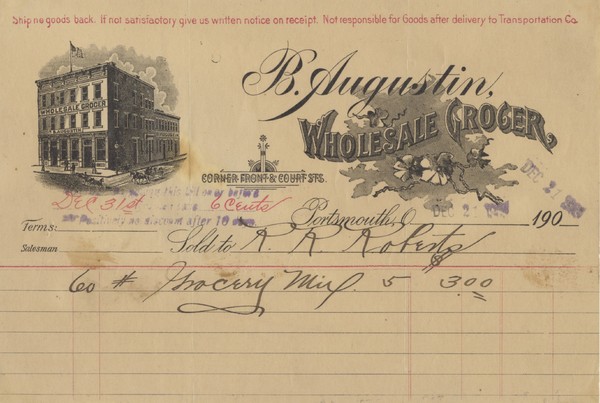 Ship no goods back. If not satisfactory give us written notice on receipt. Not responsible for Goods after delivery to Transportation Co.
B. Augustin,
WHOLESALE GROCER,
WHOLESALE GROCER
CORNER FRONT & COURT STS.
DEC 21
Dec 31st 6 Cents
Positively no discount after 10 days
Portsmouth, O. DEC 21 190
Terms:
Salesman
Sold to R. R. Roberts
60 # Grocery Mix. 5 $3.00